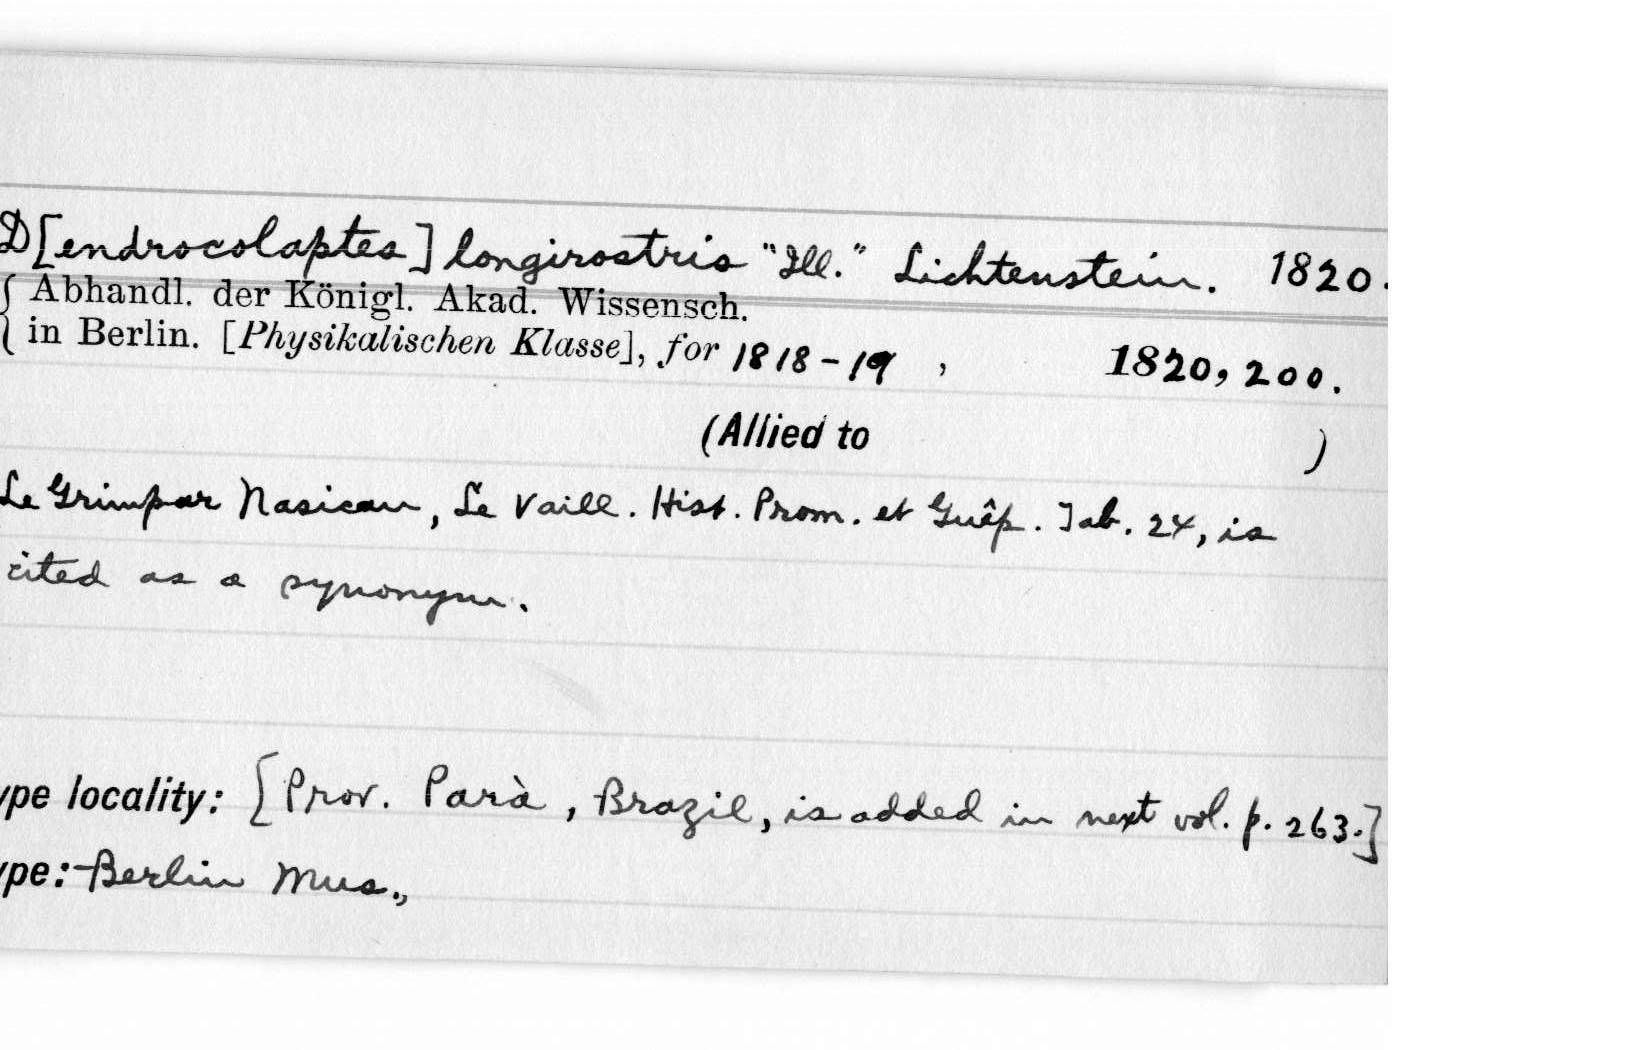 D[endrocolaptes] longirostris "Ill." Lichtenstein. 1820.
{ Abhandl. der Königl. Akad. Wissensch.
in Berlin. [Physikalischen Klasse], for 1818-19 , 1820, 200.
(Allied to )
Le Grimpar Nasican, Le Vaill. Hist. Prom. et Guêp. Tab. 24, is
cited as a synonym.
ype locality: [Prov. Parà, Brazil, is added in next vol. p. 263.]
ype: Berlin Mus.,